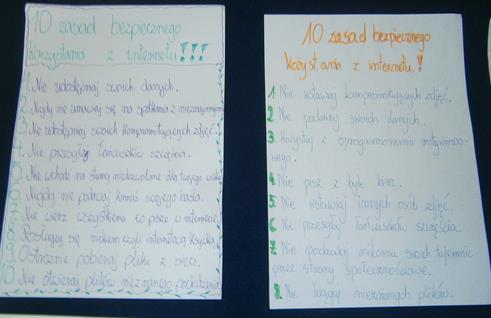 10 zasad bezpiecznego
korzystania z internetu!!!
1. Nie udostępniaj swoich danych.
2. Nigdy nie umawiaj się na spotkania z nieznajomymi
3. Nie udostępniaj swoich kompromitujących zdjęć.
4. Nie przesyłaj łańcuszków szczęścia.
5. Nie wchodź na strony niedozwolone dla twojego wieku
6. Nigdy nie podawaj komuś swojego hasła.
7. Nie wierz wszystkiemu co pisze w internecie!
8. Posługuj się nickiem czyli internetową ksywką!
9. Ostrożnie pobieraj pliki z sieci.
10. Nie otwieraj plików nieznanego pochodzenia
10 zasad bezpiecznego
kożystania z internetu!
1. Nie wstawiaj kompromitujących zdjęć.
2. Nie podawaj swoich danych.
3. Korzystaj z oprogramowania antywiruso-
wego.
4. Nie pisz z byle kim.
5. Nie wstawiaj innych osób zdjęć.
6. Nie przesyłaj łańcuszków szczęścia.
7. Nie podawaj nikomu swoich tajemnic
przez strony społecznościowe.
8. Nie ściągaj nieznanych plików.